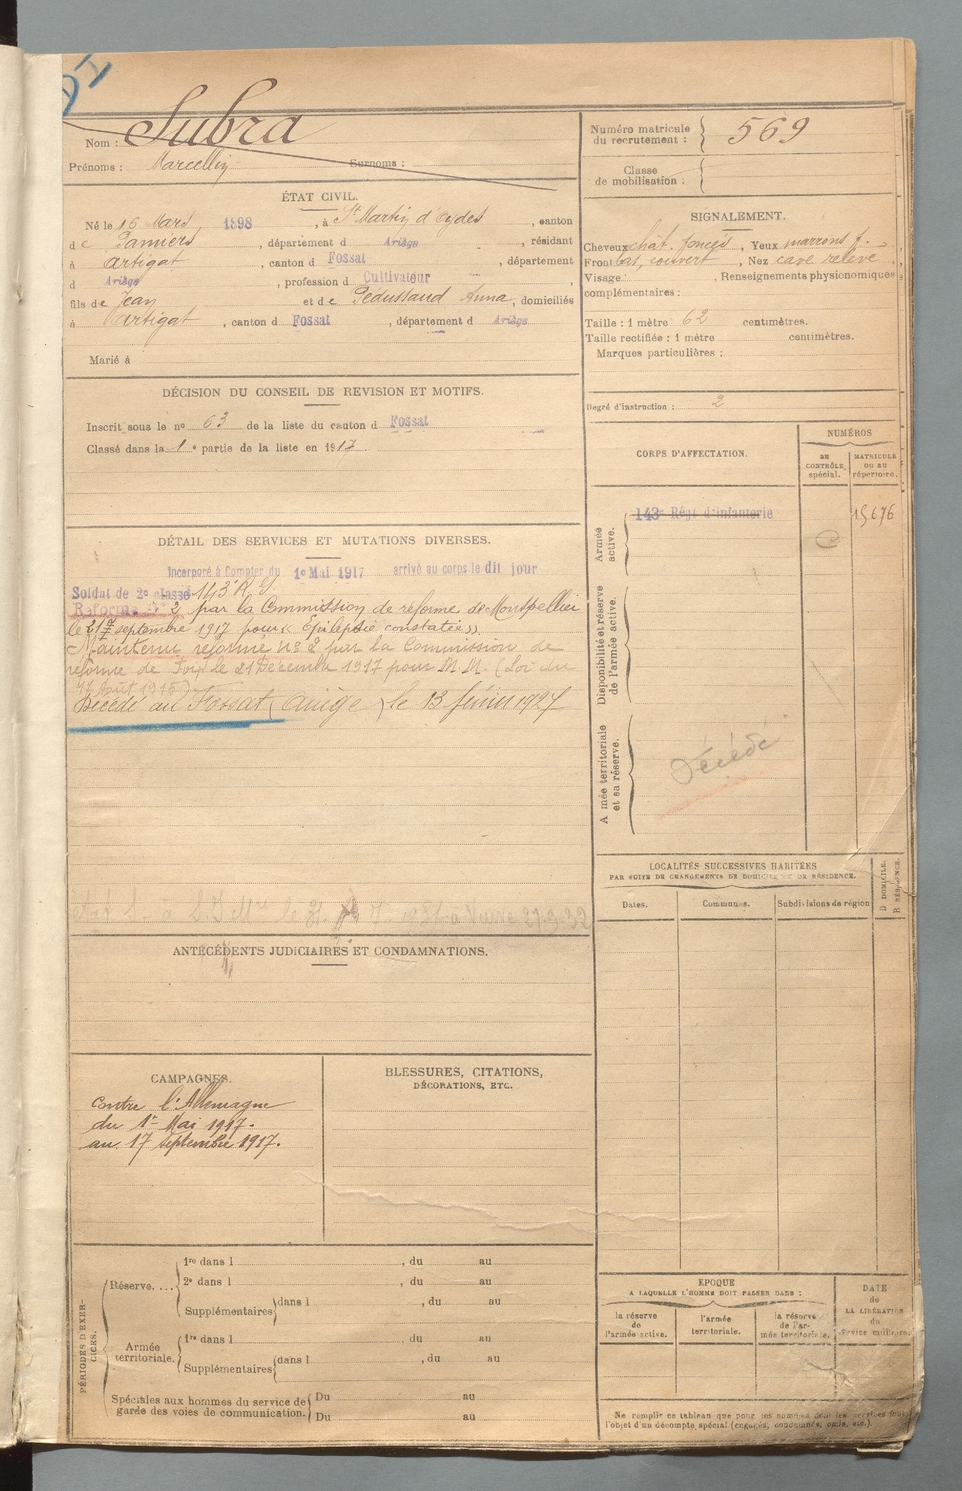 Nom : Subra
Prénoms : Marcellin Surnoms :
Numéro matricule du recrutement : 569
Classe de mobilisation :
ÉTAT CIVIL.
Né le 16 Mars 1898, à St Martin d'Oydes, canton
de Pamiers, département d Ariège, résidant
à Artigat, canton d Fossat, département
d Ariège, profession d Cultivateur,
fils de Jean et de Pédussaud Anna, domiciliés
à Artigat, canton d Fossat, département d Ariège
Marié à
SIGNALEMENT.
Cheveux chât. foncés, Yeux marrons f.
Front bas, couvert, Nez cave relevé,
Visage : , Renseignements physionomiques
complémentaires :
Taille : 1 mètre 62 centimètres.
Taille rectifiée : 1 mètre centimètres.
Marques particulières :
Degré d'instruction : 2
DÉCISION DU CONSEIL DE REVISION ET MOTIFS.
Inscrit sous le no 63 de la liste du canton d Fossat
Classé dans la 1e partie de la liste en 1917.
CORPS D'AFFECTATION.
NUMÉROS
au CONTRÔLE spécial.
MATRICULE ou au répertoire.
Armée active.
143e Régt d'infanterie
15676
Disponibilité et réserve de l'armée active.
Armée territoriale et sa réserve.
Décédé
DÉTAIL DES SERVICES ET MUTATIONS DIVERSES.
Incorporé à Compter du 1e Mai 1917 arrivé au corps le dit jour
Soldat de 2e classe 143e R.I.
Réforme No 2 par la Commission de réforme de Montpellier
le septembre 1917 pour « Épilepsie constatée ».
Maintenu réformé no 2 par la Commission de
réforme de Foix le 21 Décembre 1917 pour M.M. (Loi du
Août )
Décédé au Fossat (Ariège) le 13 février 1927
ANTÉCÉDENTS JUDICIAIRES ET CONDAMNATIONS.
LOCALITÉS SUCCESSIVES HABITÉES
PAR SUITE DE CHANGEMENTS DE DOMICILE OU DE RÉSIDENCE.
Dates.
Communes.
Subdivisions de région
D DOMICILE.
R RÉSIDENCE.
CAMPAGNES.
Contre l'Allemagne
du 1er Mai 1917.
au 17 Septembre 1917.
BLESSURES, CITATIONS,
DÉCORATIONS, ETC.
PÉRIODES D'EXERCICES.
Réserve....
1re dans l , du au
2e dans l , du au
Supplémentaires dans l , du au
Armée territoriale.
1re dans l , du au
Supplémentaires dans l , du au
Spéciales aux hommes du service de garde des voies de communication.
Du au
Du au
EPOQUE
A LAQUELLE L'HOMME DOIT PASSER DANS :
la réserve de l'armée active.
l'armée territoriale.
la réserve de l'armée territoriale.
DATE
de
LA LIBÉRATION
du
service militaire.
Ne remplir ce tableau que pour les hommes dont les services font
l'objet d'un décompte spécial (engagés, condamnés, omis, etc.).